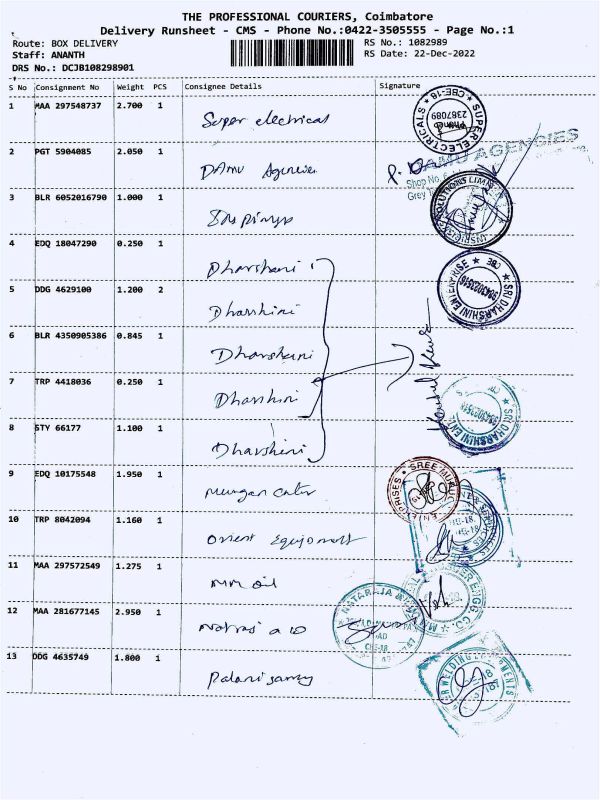 THE PROFESSIONAL COURIERS, Coimbatore
Delivery Runsheet - CMS - Phone No.:0422-3505555 - Page No.:1
Route: BOX DELIVERY
RS No.: 1082989
Staff: ANANTH
RS Date: 22-Dec-2022
DRS No.: DCJB108298901
S No Consignment No Weight PCS Consignee Details Signature
1 MAA 297548737 2.700 1 Super electrical
SUPER ELECTRICALS CBE-18 Phone 2387089
2 PGT 5904085 2.050 1 DAmu Agencies
DAMU AGENCIES
Shop No.
3 BLR 6052016790 1.000 1
SOLUTIONS
4 EDQ 18047290 0.250 1 Dharshani
5 DDG 4629100 1.200 2 Dharshini
SRI DHARSHINI ENTERPRISE CBE
6 BLR 4350905386 0.845 1 Dharshani
7 TRP 4418036 0.250 1 Dharshini
SRI DHARSHINI
8 STY 66177 1.100 1 Dharshini
9 EDQ 10175548 1.950 1
SREE ENTERPRISES
10 TRP 8042094 1.160 1 Orient Equipment
11 MAA 297572549 1.275 1 MM oil
ENGG. CO.
12 MAA 281677145 2.950 1
NATARAJA
13 DDG 4635749 1.800 1 Palanisamy
WELDING